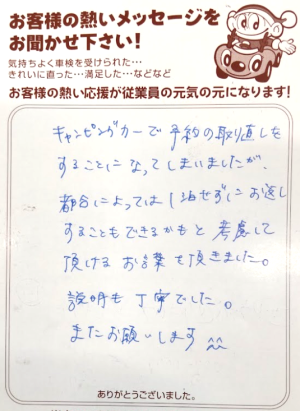 お客様の熱いメッセージを
お聞かせ下さい!
気持ちよく車検を受けられた…
きれいに直った…満足した…などなど
お客様の熱い応援が従業員の元気の元になります!
キャンピングカーで予約の取り直しを
することになってしまいましたが、
都合によっては1泊せずにお返し
することもできるかもと考慮して
頂けるお言葉も頂きました。
説明も丁寧でした。
またお願いします
ありがとうございました。